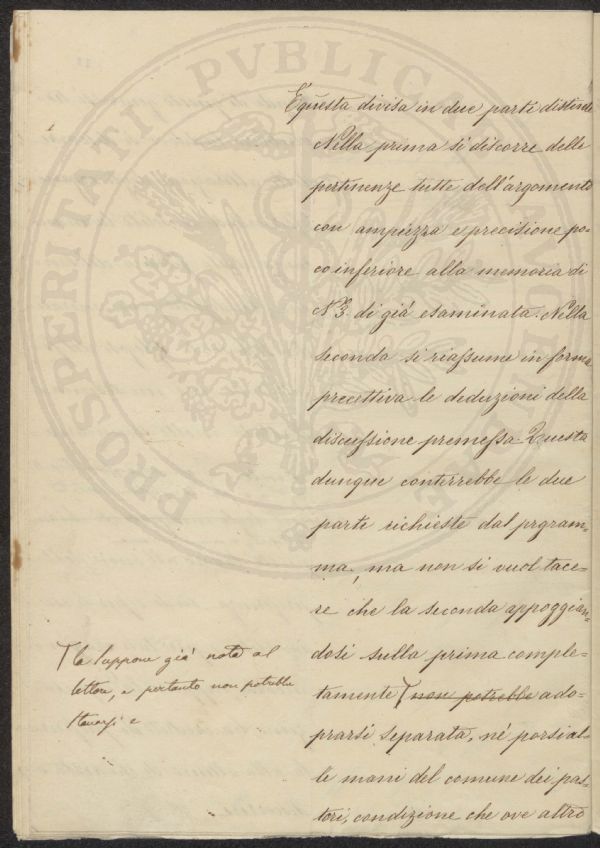 È questa divisa in due parti distinte
Nella prima si discorre delle
pertinenze tutte dell'argomento
con ampiezza e precisione po-
co inferiore alla memoria di
N.º 3. di già esaminata. Nella
seconda si riassume in forma
precettiva le deduzioni della
discussione premessa Questa
dunque conterrebbe le due
parti richieste dal prgram-
ma, ma non si vuol tace-
re che la seconda appoggian-
dosi sulla prima comple-
tamente non potrebbe ado-
prarsi separata, né porsi al-
le mani del comune dei pas-
tori, condizione che ove altro
la suppone già nota al
lettore, e pertanto non potrebbe
e
PROSPERITATI PVBLICAE